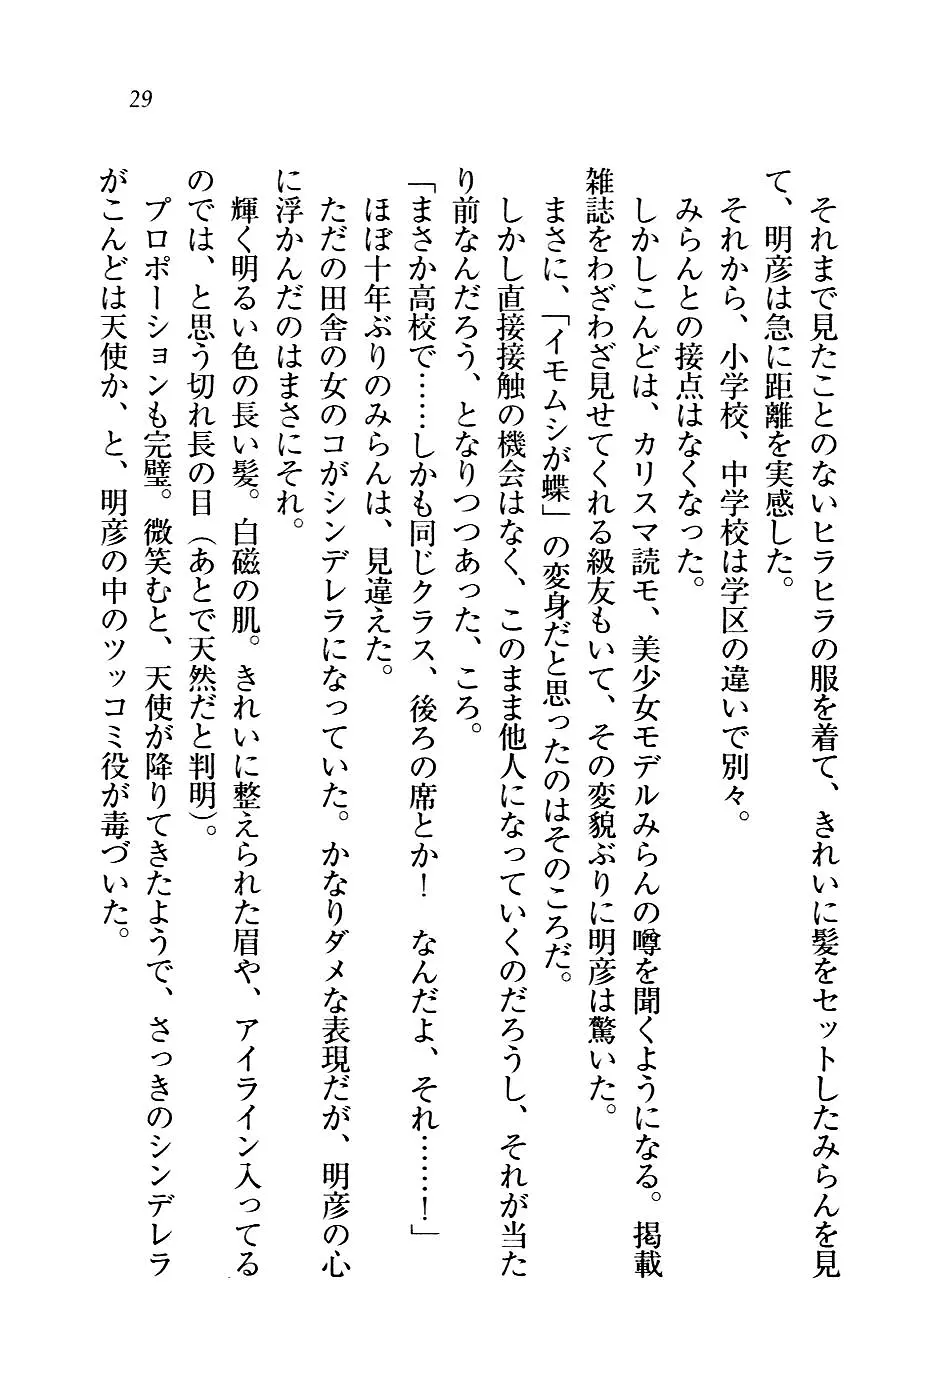 29
それまで見たことのないヒラヒラの服を着て、きれいに髪をセットしたみらんを見
て、明彦は急に距離を実感した。
それから、小学校、中学校は学区の違いで別々。
みらんとの接点はなくなった。
しかしこんどは、カリスマ読モ、美少女モデルみらんの噂を聞くようになる。掲載
雑誌をわざわざ見せてくれる級友もいて、その変貌ぶりに明彦は驚いた。
まさに、「イモムシが蝶」の変身だと思ったのはそのころだ。
しかし直接接触の機会はなく、このまま他人になっていくのだろうし、それが当た
り前なんだろう、となりつつあった、ころ。
「まさか高校で……しかも同じクラス、後ろの席とか！　なんだよ、それ……！」
ほぼ十年ぶりのみらんは、見違えた。
ただの田舎の女のコがシンデレラになっていた。かなりダメな表現だが、明彦の心
に浮かんだのはまさにそれ。
輝く明るい色の長い髪。白磁の肌。きれいに整えられた眉や、アイライン入ってる
のでは、と思う切れ長の目（あとで天然だと判明）。
プロポーションも完璧。微笑むと、天使が降りてきたようで、さっきのシンデレラ
がこんどは天使か、と、明彦の中のツッコミ役が毒づいた。